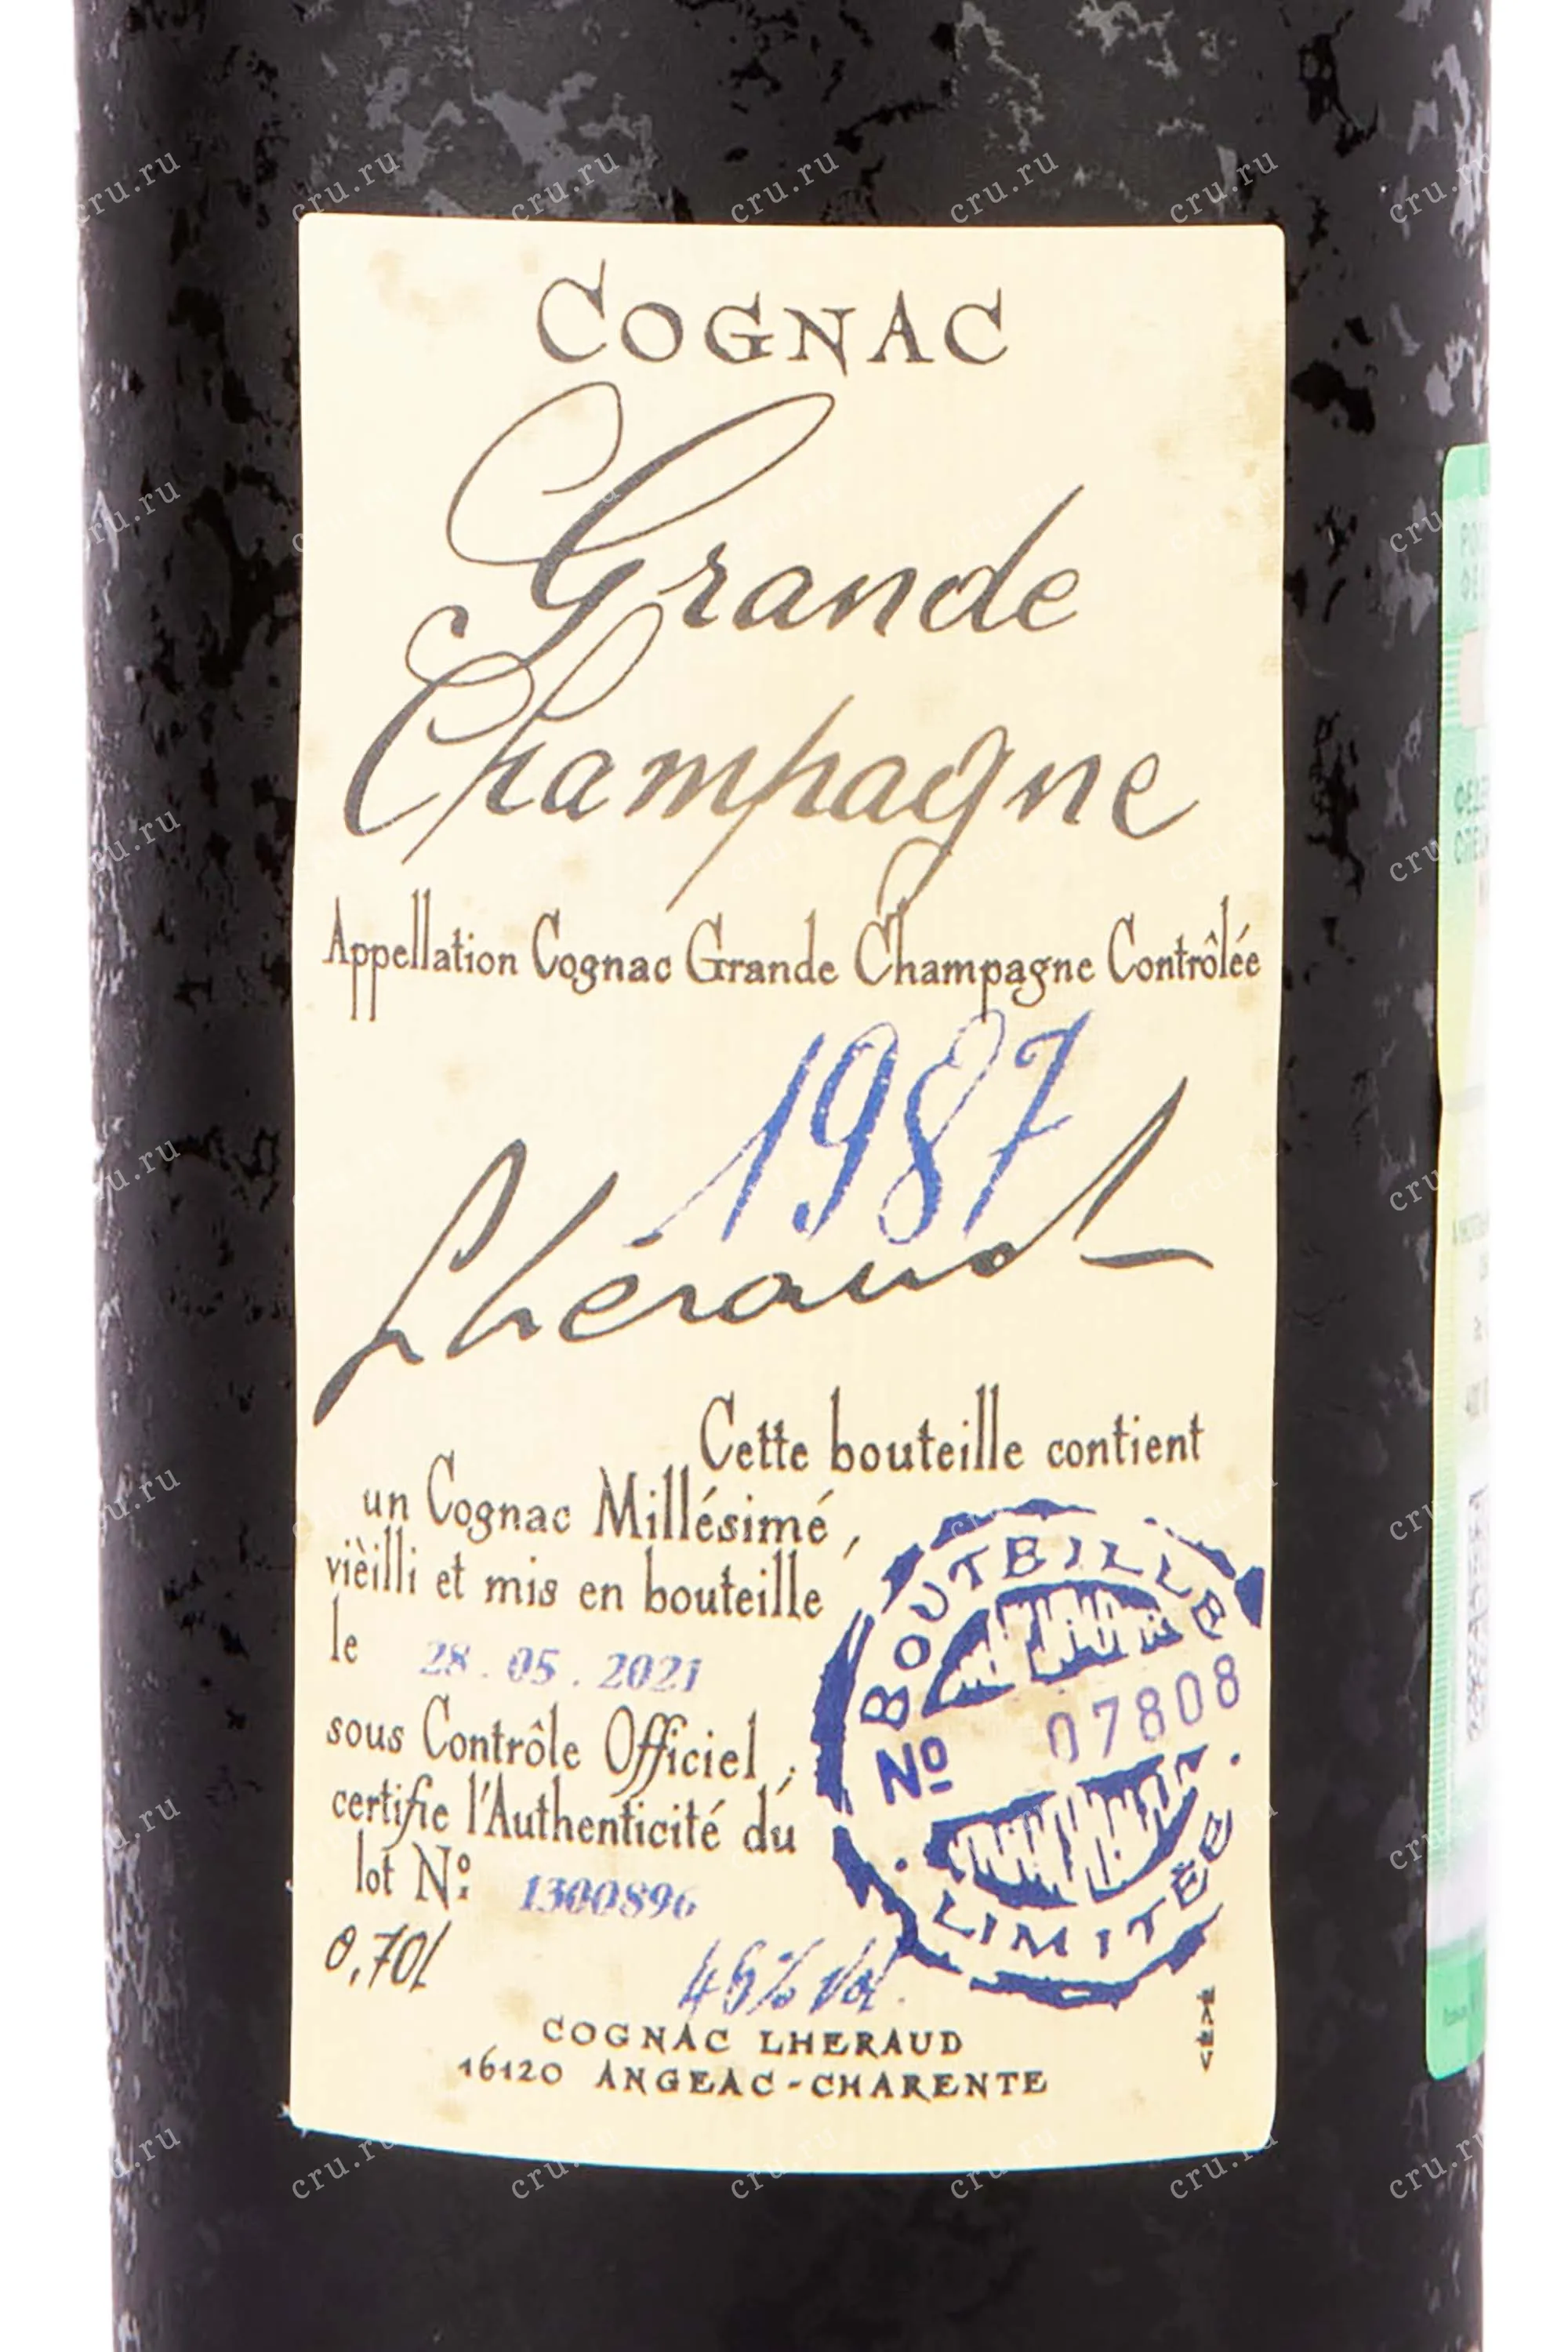 COGNAC
Grande
Champagne
Appellation Cognac Grande Champagne Contrôlée
1987
Lhéraud
Cette bouteille contient
un Cognac Millésimé,
vièilli et mis en bouteille
le 28.05.2021
sous Contrôle Officiel,
certifie l'Authenticité du
lot Nº: 1300896
BOUTEILLE
Nº 07808
LIMITÉE
0,70l
% Vol.
COGNAC LHERAUD
16120 ANGEAC-CHARENTE
cru.ru